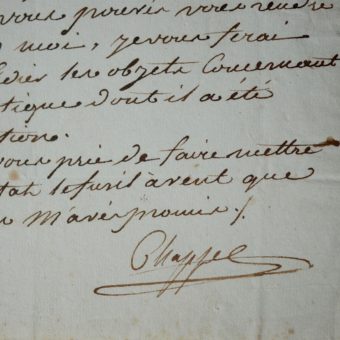 vous pouvés vous rendre
moi, je vous ferai
les objets Concernant
tique dont il a été
tion.
vous prie de faire mettre
le fusil à vent que
m'avés promis.
Chappe